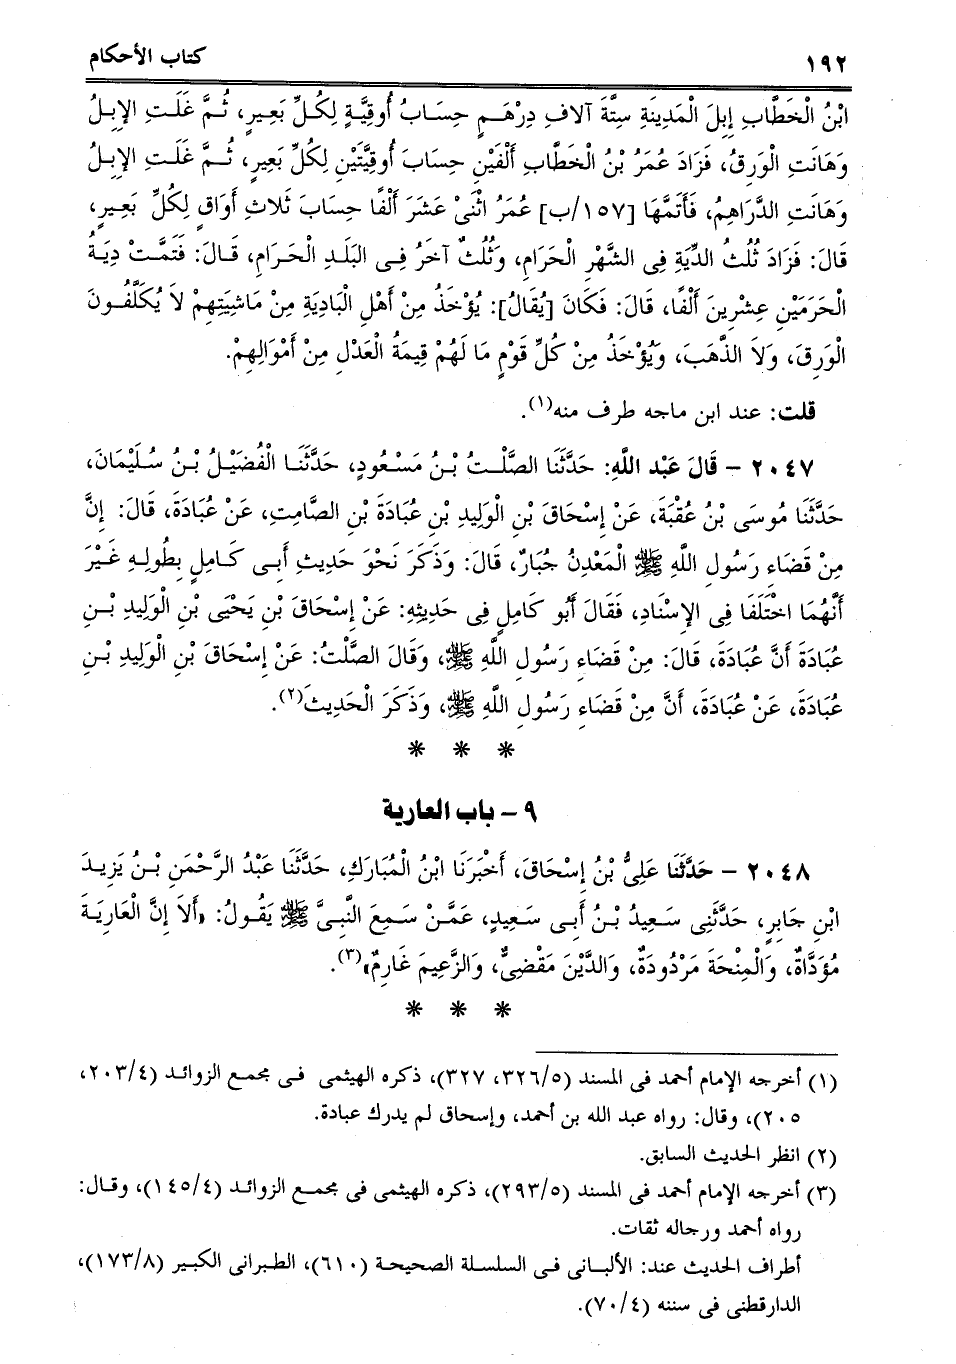 ١٩٢ كتاب الأحكام
ابْنُ الْخَطَّابِ إِبِلَ الْمَدِينَةِ سِتَّةَ آلافِ دِرْهَمٍ حِسَابُ أُوقِيَّةٍ لِكُلِّ بَعِيرٍ، ثُمَّ غَلَتِ الإِبِلُ
وَهَانَتِ الْوَرِقُ، فَزَادَ عُمَرُ بْنُ الْخَطَّابِ أَلْفَيْنِ حِسَابَ أُوقِيَّتَيْنِ لِكُلِّ بَعِيرٍ، ثُمَّ غَلَتِ الإِبِلُ
وَهَانَتِ الدَّرَاهِمُ، فَأَتَمَّهَا [١٥٧/ب] عُمَرُ اثْنَىْ عَشَرَ أَلْفًا حِسَابَ ثَلاثِ أَوَاقٍ لِكُلِّ بَعِيرٍ،
قَالَ: فَزَادَ ثُلُثُ الدِّيَةِ فِى الشَّهْرِ الْحَرَامِ، وَثُلُثٌ آخَرُ فِى الْبَلَدِ الْحَرَامِ، قَالَ: فَتَمَّتْ دِيَةُ
الْحَرَمَيْنِ عِشْرِينَ أَلْفًا، قَالَ: فَكَانَ [يُقَالُ]: يُؤْخَذُ مِنْ أَهْلِ الْبَادِيَةِ مِنْ مَاشِيَتِهِمْ لاَ يُكَلَّفُونَ
الْوَرِقَ، وَلاَ الذَّهَبَ، وَيُؤْخَذُ مِنْ كُلِّ قَوْمٍ مَا لَهُمْ قِيمَةُ الْعَدْلِ مِنْ أَمْوَالِهِمْ.
قلت: عند ابن ماجه طرف منه(١).
٢٠٤٧ - قَالَ عَبْد اللَّهِ: حَدَّثَنَا الصَّلْتُ بْنُ مَسْعُودٍ، حَدَّثَنَا الْفُضَيْلُ بْنُ سُلَيْمَانَ،
حَدَّثَنَا مُوسَى بْنُ عُقْبَةَ، عَنْ إِسْحَاقَ بْنِ الْوَلِيدِ بْنِ عُبَادَةَ بْنِ الصَّامِتِ، عَنْ عُبَادَةَ، قَالَ: إِنَّ
مِنْ قَضَاءِ رَسُولِ اللَّهِ ﷺ الْمَعْدِنُ جُبَارٌ، قَالَ: وَذَكَرَ نَحْوَ حَدِيثِ أَبِى كَامِلٍ بِطُولِهِ غَيْرَ
أَنَّهُمَا اخْتَلَفَا فِى الإِسْنَادِ، فَقَالَ أَبُو كَامِلٍ فِى حَدِيثِهِ: عَنْ إِسْحَاقَ بْنِ يَحْيَى بْنِ الْوَلِيدِ بْنِ
عُبَادَةَ أَنَّ عُبَادَةَ، قَالَ: مِنْ قَضَاءِ رَسُولِ اللَّهِ ﷺ، وَقَالَ الصَّلْتُ: عَنْ إِسْحَاقَ بْنِ الْوَلِيدِ بْنِ
عُبَادَةَ، عَنْ عُبَادَةَ، أَنَّ مِنْ قَضَاءِ رَسُولِ اللَّهِ ﷺ، وَذَكَرَ الْحَدِيثَ(٢).
* * *
٩ - باب العارية
٢٠٤٨ - حَدَّثَنَا عَلِىُّ بْنُ إِسْحَاقَ، أَخْبَرَنَا ابْنُ الْمُبَارَكِ، حَدَّثَنَا عَبْدُ الرَّحْمَنِ بْنُ يَزِيدَ
ابْنِ جَابِرٍ، حَدَّثَنِى سَعِيدُ بْنُ أَبِى سَعِيدٍ، عَمَّنْ سَمِعَ النَّبِىَّ ﷺ يَقُولُ: «أَلاَ إِنَّ الْعَارِيَةَ
مُؤَدَّاةٌ، وَالْمِنْحَةَ مَرْدُودَةٌ، وَالدَّيْنَ مَقْضِىٌّ، وَالزَّعِيمَ غَارِمٌ»(٣).
* * *
(١) أخرجه الإمام أحمد فى المسند (٣٢٦/٥، ٣٢٧)، ذكره الهيثمى فى مجمع الزوائد (٢٠٣/٤،
٢٠٥)، وقال: رواه عبد الله بن أحمد، وإسحاق لم يدرك عبادة.
(٢) انظر الحديث السابق.
(٣) أخرجه الإمام أحمد فى المسند (٢٩٣/٥)، ذكره الهيثمى فى مجمع الزوائد (١٤٥/٤)، وقال:
رواه أحمد ورجاله ثقات.
أطراف الحديث عند: الألبانى فى السلسلة الصحيحة (٦١٠)، الطبرانى الكبير (١٧٣/٨)،
الدارقطنى فى سننه (٧٠/٤).